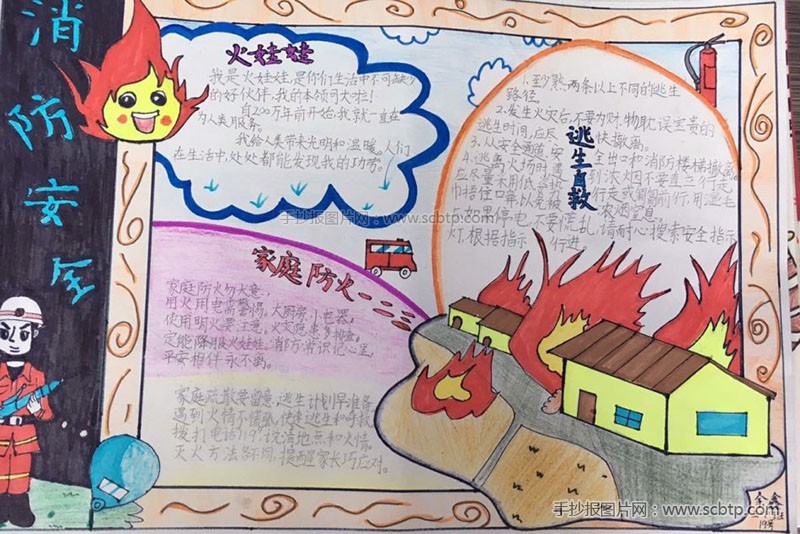 消防安全
火娃娃
我是火娃娃,是你们生活中不可缺少
的好伙伴,我的本领可大啦!
自200万年前开始,我就一直在
为人类服务。
我给人类带来光明和温暖,人们
在生活中,处处都能发现我的功劳。
手抄报图片网:www.scbtp.com
逃生自救
1.至少熟两条以上不同的逃生
路径。
2.发生火灾后,不要为财物耽误宝贵的
逃生时间,应尽快撤离。
3.从安全通道、安全出口和消防楼梯撤离。
4.逃离火场时遇到浓烟不要直立行走
应尽量采用低姿
行走或匍匐前行,用湿毛
巾捂住口鼻以免被浓烟窒息。
5.如果停电,不要慌乱,请耐心搜索安全指示
灯,根据指示行进。
家庭防火一二三
家庭防火勿大意,
用火用电需警惕,大厨房小电器,
使用明火要注意,火灾危患多排查,
定能降服火娃娃,消防常识记心里,
平安相伴永不离。
家庭疏散要留意,逃生计划早准备
遇到火情不慌乱,快速逃生和自救
拨打电话119,说清地点和火情。
灭火方法各不同,提醒家长巧应对。
19号
手抄报图片网:www.scbtp.com